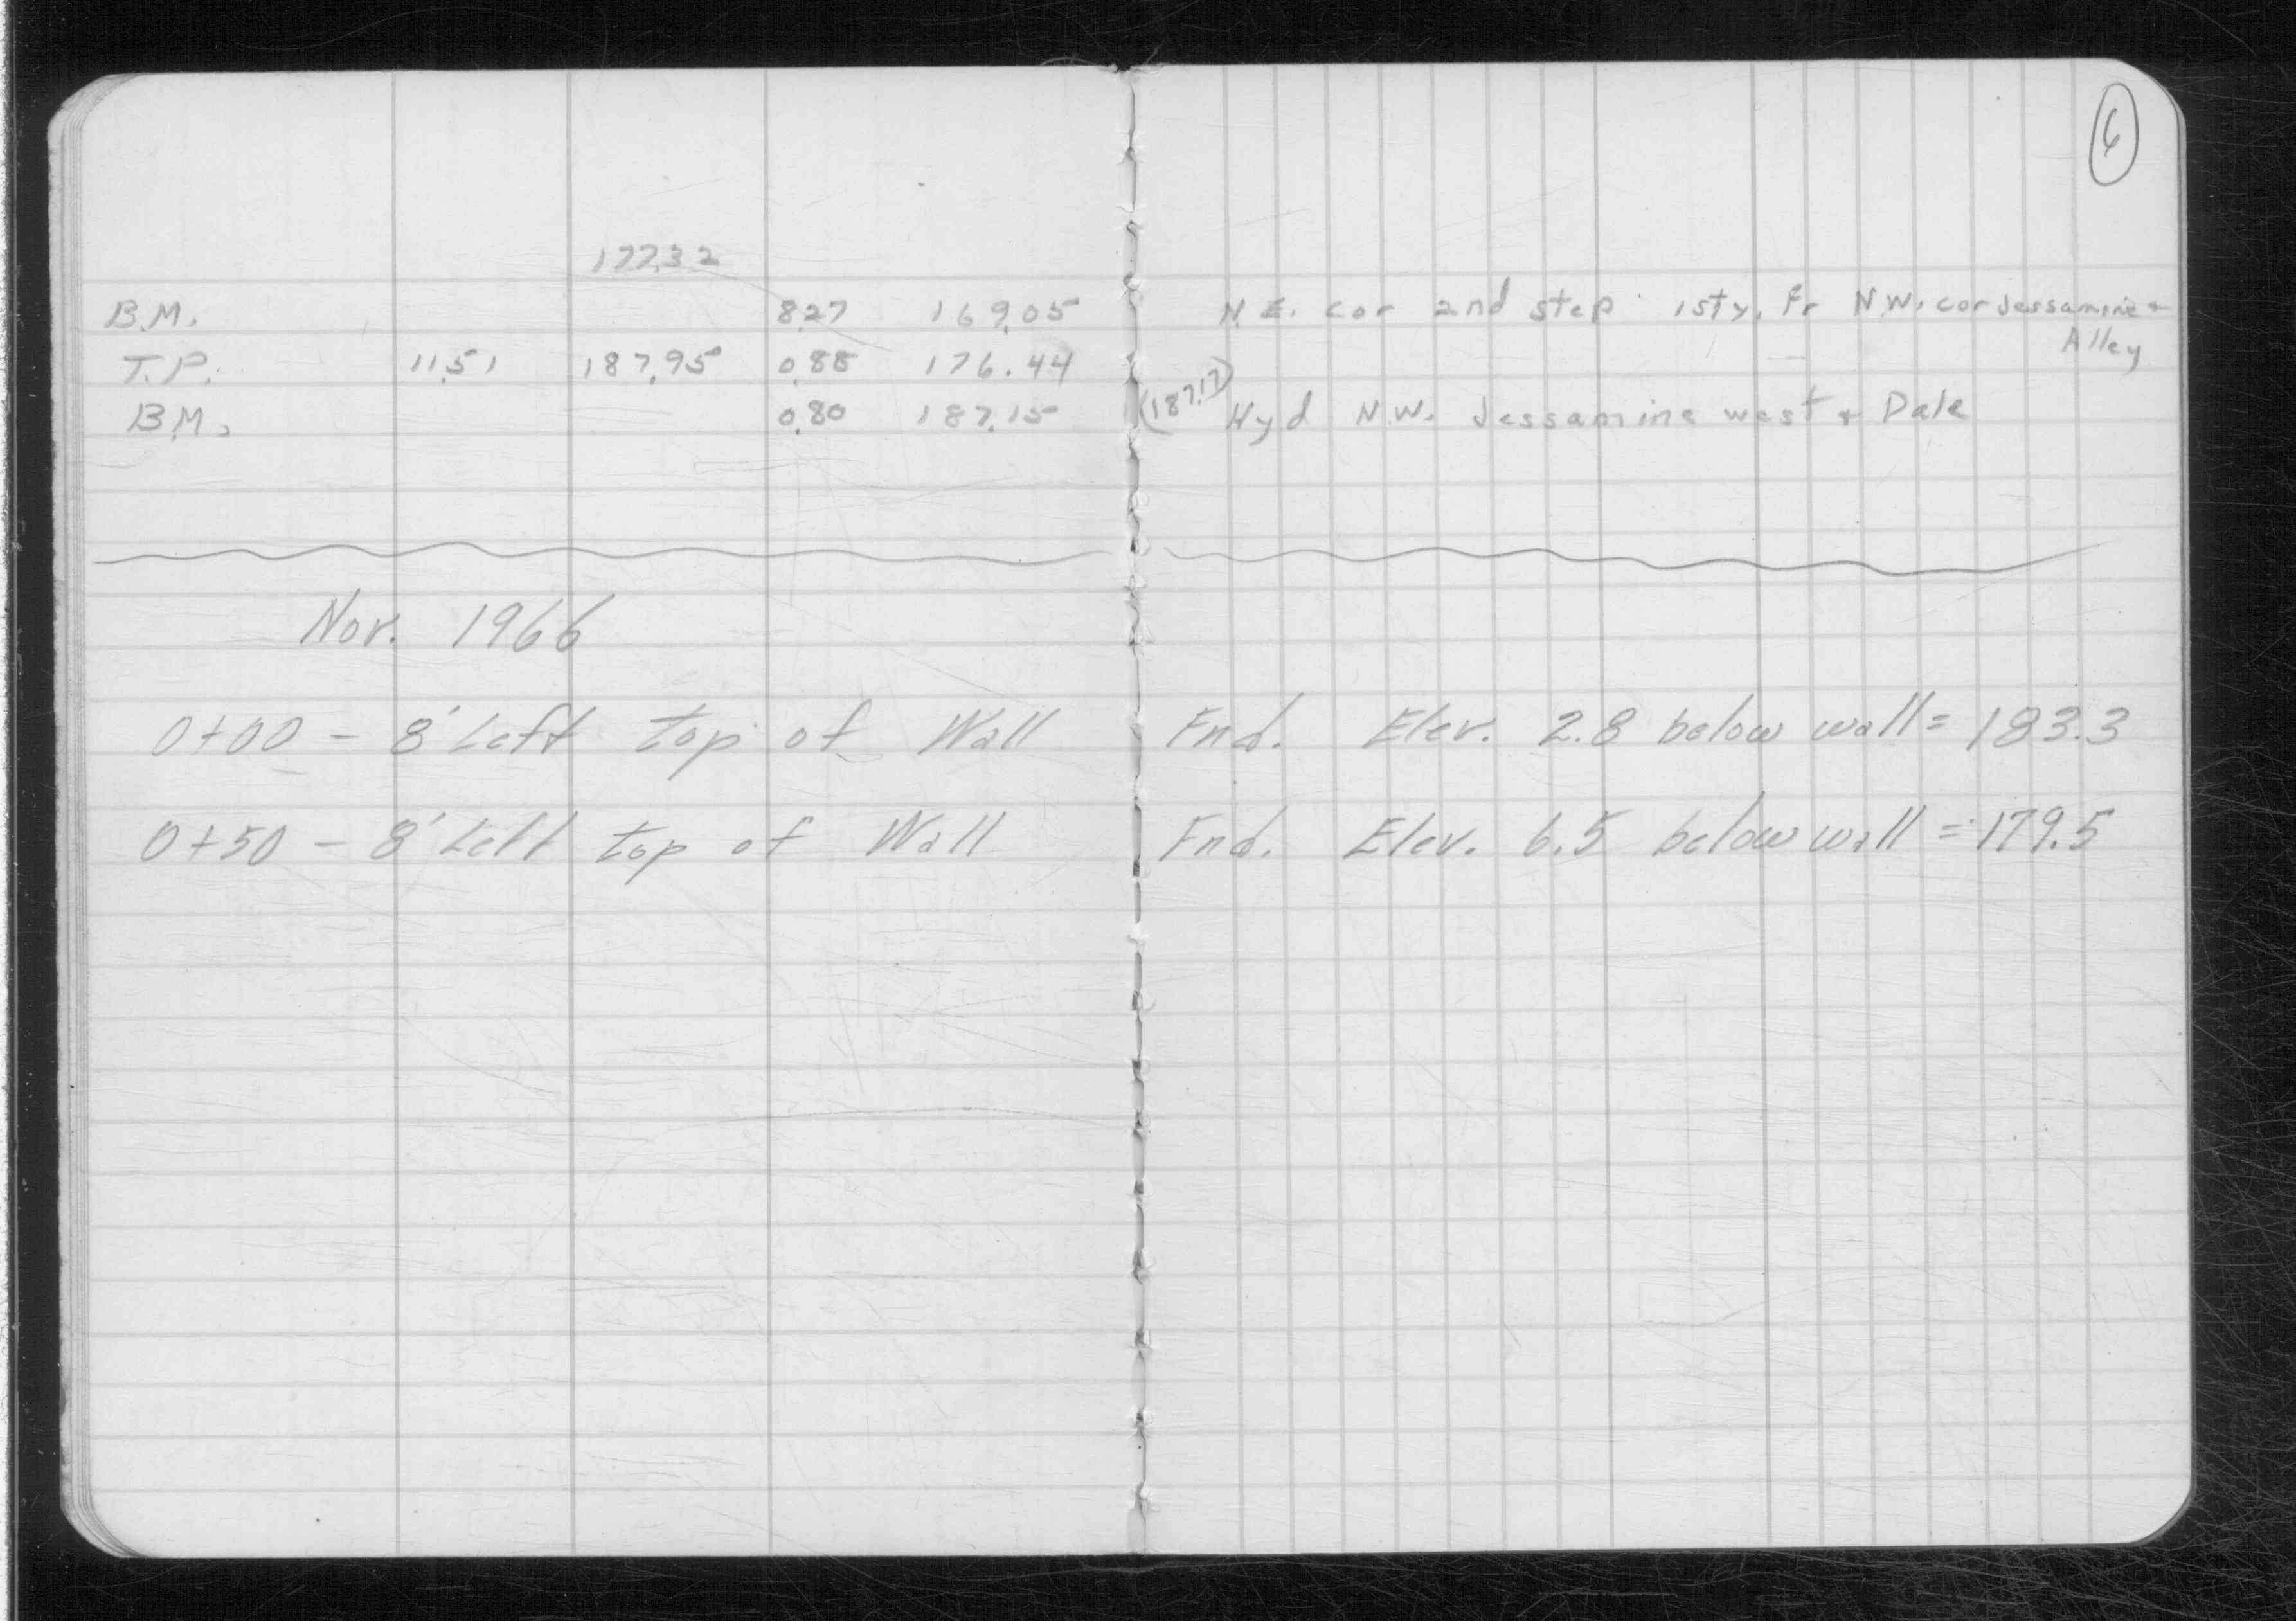 6
177.32
B.M. 8.27 169.05 N.E. cor 2nd step 1sty. Fr N.W. cor Jessamine +
Alley
T.P. 11.51 187.95 0.88 176.44
B.M. 0.80 187.15 (187.17) Hyd N.W. Jessamine west + Dale
Nov. 1966
0+00 - 8' Left top of Wall Fnd. Elev. 2.8 below wall = 183.3
0+50 - 8' Left top of Wall Fnd. Elev. 6.5 below wall = 179.5